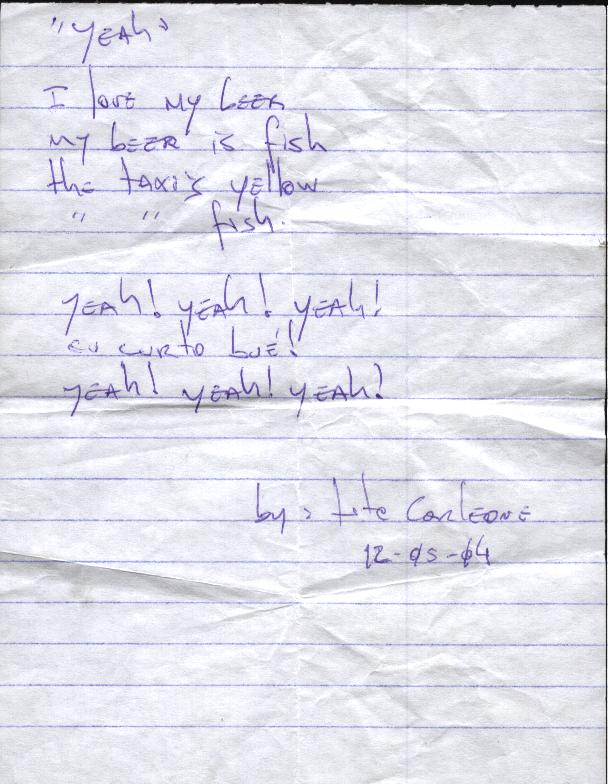 "YEAh"
I love my beer
my bEER is fish
the taxi's yellow
" " fish.
yEAh! yEAh! yEAh!
eu curto bué!
yEAh! yEAh! yEAh!
by: tite CorlEONE
12-05-04